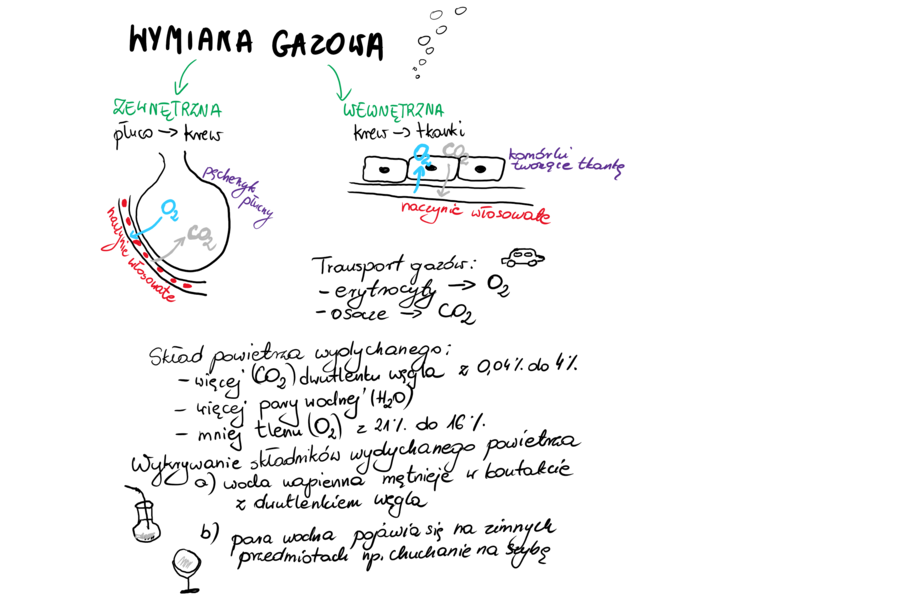 WYMIANA GAZOWA
ZEWNĘTRZNA
płuco → krew
pęcherzyk płucny
O2
CO2
naczynie włosowate
WEWNĘTRZNA
krew → tkanki
O2 CO2
komórki
tworzące tkankę
naczynie włosowate
Transport gazów:
- erytrocyty → O2
- osocze → CO2
Skład powietrza wydychanego:
- więcej (CO2) dwutlenku węgla z 0,04% do 4%
- więcej pary wodnej (H2O)
- mniej tlenu (O2) z 21% do 16%.
Wykrywanie składników wydychanego powietrza
a) woda wapienna mętnieje w kontakcie
z dwutlenkiem węgla
b) para wodna pojawia się na zimnych
przedmiotach np. chuchanie na szybę